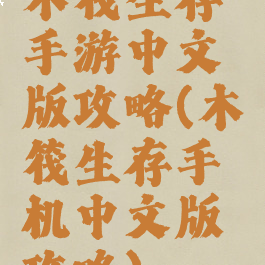 木筏生存
手游中文
版攻略(木
筏生存手
机中文版
攻略)